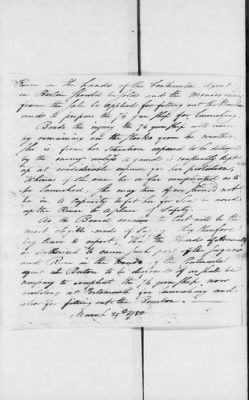 Rum in the hands of the Continental Agent
in Boston should be sold and the Monies arising
from the Sale be applied for fitting out the
and to prepare the 76 Gun Ship for Launching.
Besides the injury the 76 Gun Ship will receive
by remaining on the Stocks from the weather,
She is from her Situation exposed to be destroyed
by the enemy unless a guard is continually kept
up at considerable expence for her protection,
Whereas if she were so far compleated as to
be launched, she may then if we should not
be in a Capacity to fit her for Sea be moved
up the River to a place of Safety.
As the Board conceive that will be the
most eligible mode of They therefore
beg leave to report, that the Board of Admiralty
be authorized to cause such part of the Sugars
and Rum in the hands of the Continental
agent at Boston to be disposed of as shall be
necessary to compleat the 76 gun Ship, now
building at Portsmouth for launching and
also for fitting out the
March 29th 1780